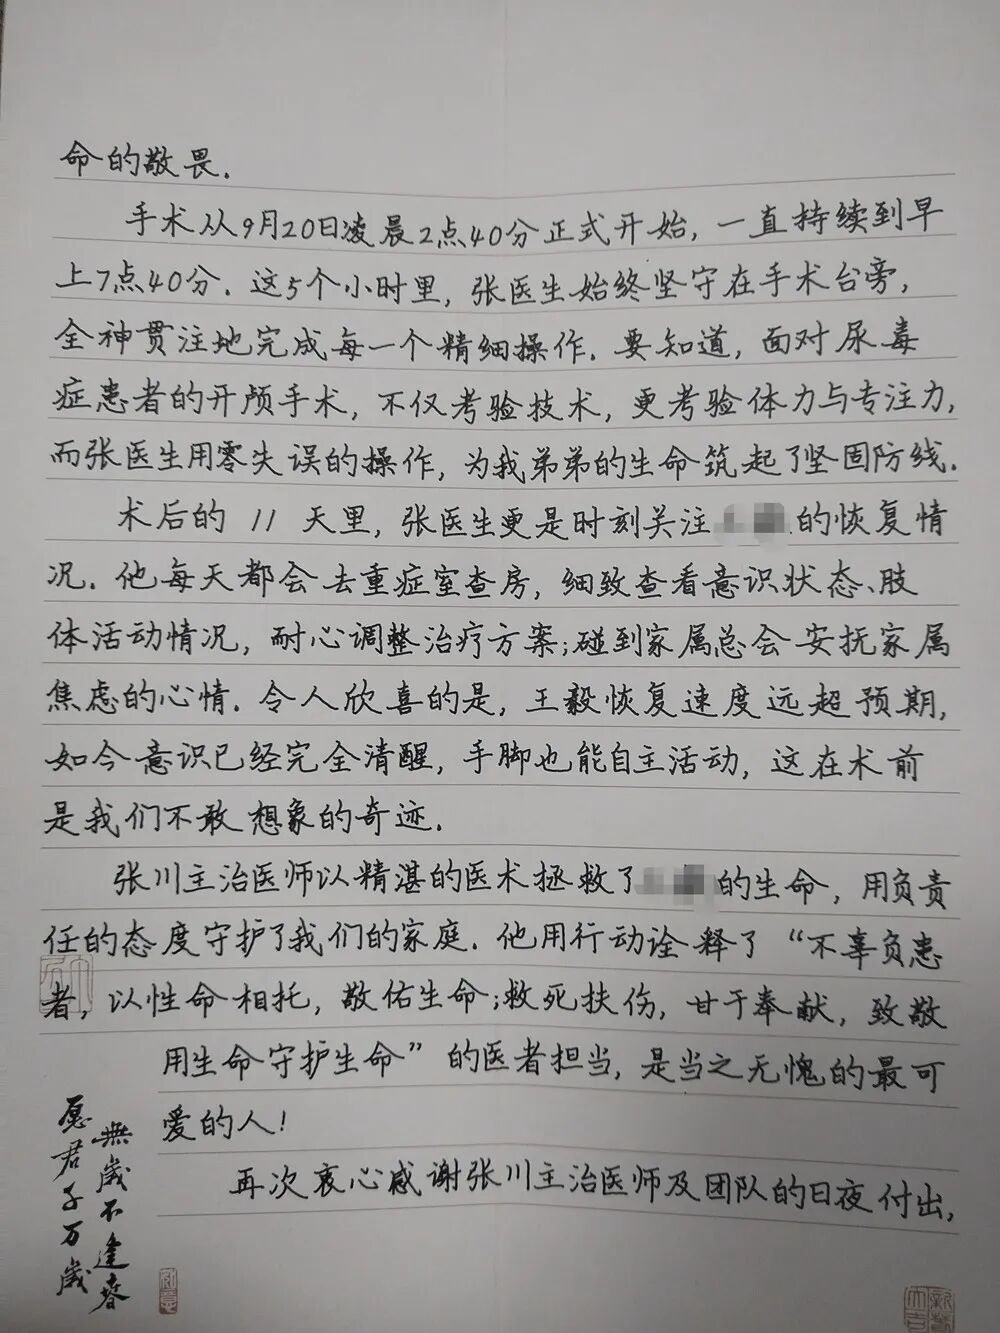 命的敬畏.
手术从9月20日凌晨2点40分正式开始, 一直持续到早
上7点40分. 这5个小时里, 张医生始终坚守在手术台旁,
全神贯注地完成每一个精细操作. 要知道, 面对尿毒
症患者的开颅手术, 不仅考验技术, 更考验体力与专注力,
而张医生用零失误的操作, 为我弟弟的生命筑起了坚固防线.
术后的 11 天里, 张医生更是时刻关注 的恢复情
况. 他每天都会去重症室查房, 细致查看意识状态、肢
体活动情况, 耐心调整治疗方案; 碰到家属总会安抚家属
焦虑的心情. 令人欣喜的是, 王毅恢复速度远超预期,
如今意识已经完全清醒, 手脚也能自主活动, 这在术前
是我们不敢想象的奇迹.
张川主治医师以精湛的医术拯救了 的生命, 用负责
任的态度守护了我们的家庭. 他用行动诠释了 “不辜负患
者, 以性命相托, 敬佑生命; 救死扶伤, 甘于奉献, 致敬
用生命守护生命” 的医者担当, 是当之无愧的最可
爱的人!
再次衷心感谢张川主治医师及团队的日夜付出,
愿君子万歲
無歲不逢春